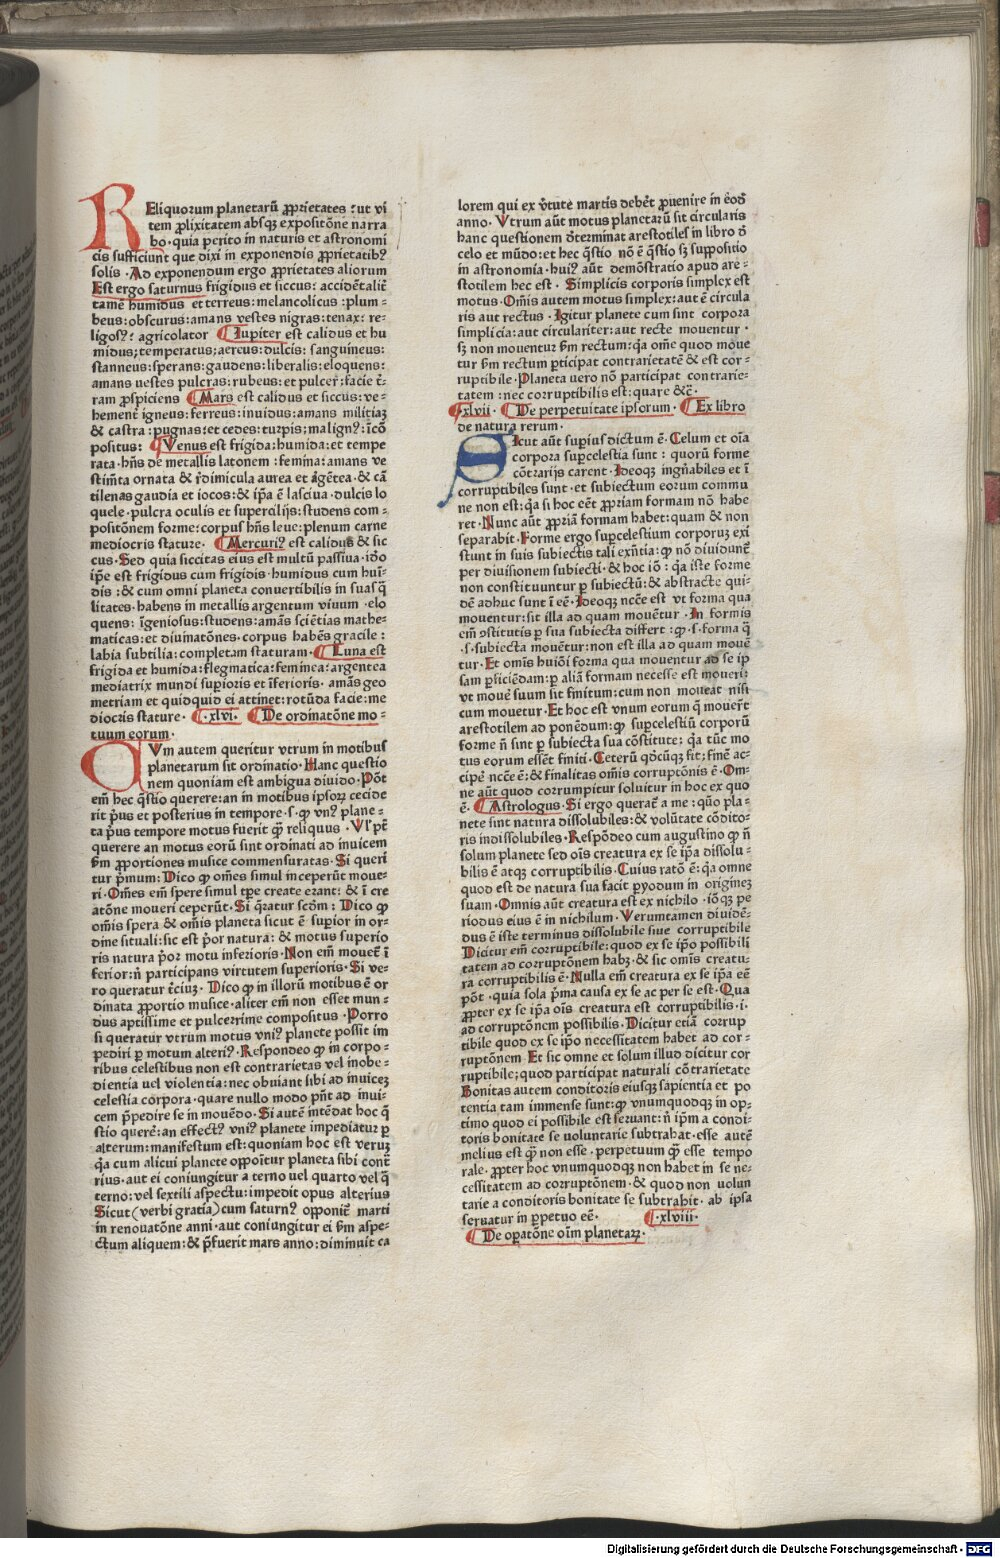 REliquorum planetarū ꝓprietates : ut vi
tem ꝓlixitatem absqꝫ expositōne narra
bo · quia perito in naturis et astronomi
cis sufficiunt que dixi in exponendis ꝓprietatibꝰ
solis · Ad exponendum ergo ꝓprietates aliorum
Est ergo saturnus frigidus et siccus : accidētaliē
tamē humidus et terreus : melancolicus : plum⸗
beus : obscurus : amans vestes nigras : tenax : re⸗
ligosꝰ : agricolator ¶ Iupiter est calidus et hu
midus; temperatus; aereus : dulcis : sanguineus :
stanneus : sperans : gaudens : liberalis : eloquens :
amans uestes pulcras : rubeus : et pulcer : facie t̄⸗
ram ꝓspiciens ¶ Mars est calidus et siccus : ve⸗
hement̄ igneus : ferreus : inuidus : amans militiaꝫ
& castra : pugnas : et cedes : turpis; malignꝰ : īcō
positus : ¶ Venus est frigida : humida : et tempe
rata · hn̄s de metallis latonem : femina : amans ve
stim̄ta ornata & r̄dimicula aurea et āgētea · & cā
tilenas gaudia et iocos : & ip̄a ē lasciua · dulcis lo
quele · pulcra oculis et supercilijs : studens com⸗
positōnem forme : corpus hn̄s leue : plenum carne
mediocris stature · ¶ Mercuriꝰ est calidus & sic
cus · Sed quia siccitas eius est multū passiua · id̄o
ip̄e est frigidus cum frigidis · humidus cum huī⸗
dis : & cum omni planeta conuertibilis in suas q̄
litates · habens in metallis argentum viuum · elo
quens : īgeniosus : studens : amās sciētias mathe⸗
maticas : et diuinatōnes · corpus habēs gracile :
labia subtilia : completam staturam · ¶ Luna est
frigida et humida : flegmatica : feminea : argentea
mediatrix mundi supīoris et īferioris · amās geo
metriam et quidquid ei attinet : rotūda facie : me
diocris stature · ¶ ·xlvi· ¶ De ordinatōne mo⸗
tuum eorum ·
CVm autem queritur vtrum in motibus
planetarum sit ordinatio · Hanc questio
nem quoniam est ambigua diuido · Pōt
em̄ hec q̄stio querere : an in motibus ipsoꝝ cecide
rit pͥus et posterius in tempore · s · ꝙ vnꝰ plane⸗
ta pͥus tempore motus fuerit qͣꝫ reliquus · Vl̓ pt̄
querere an motus eorū sint ordinati ad inuicem
ẜm ꝓportiones musice commensuratas · Si queri
tur pͥmum : Dico ꝙ om̄es simul inceperūt moue⸗
ri · Om̄es em̄ spere simul tꝑe create erant : & ī cre
atōne moueri ceperūt · Si q̄ratur scd̄m : Dico ꝙ
om̄is spera & om̄is planeta sicut ē supior in or⸗
dine situali : sic est pͥor natura : & motus superio
ris natura pͥor motu inferioris · Non em̄ mouet̄ ī
ferior : n̄ participans virtutem superioris · Si ve⸗
ro queratur t̄ciuꝫ · Dico ꝙ in illorū motibus ē or
dinata ꝓportio musice · aliter em̄ non esset mun⸗
dus aptissime et pulcerrime compositus · Porro
si queratur vtrum motus vniꝰ planete possit im
pediri ꝑ motum alteriꝰ · Respondeo ꝙ in corpo⸗
ribus celestibus non est contrarietas vel inobe⸗
dientia uel violentia : nec obuiant sibi ad inuiceꝫ
celestia corpora · quare nullo modo pn̄t ad inui⸗
cem p̄pedire se in mouēdo · Si autē intēdat hoc q̄
stio querē : an effectꝰ vniꝰ planete impediatur ꝑ
alterum : manifestum est : quoniam hoc est veruꝫ
q̇a cum alicui planete oppoīt̄ur planeta sibi cont̄
rius · aut ei coniungitur a terno uel quarto vel q̄
terno : vel sextili aspectu : impedit opus alterius
Sicut (verbi gratia) cum saturnꝰ opponit̄ marti
in renouatōne anni · aut coniungitur ei ẜm aspe⸗
ctum aliquem : & p̄fuerit mars anno : diminuit ca
lorem qui ex v̄tute martis debēt ꝓuenire in eod̄
anno · Vtrum aūt motus planetarū sit circularis
hanc questionem d̄terminat arestotiles in libro d̄
celo et mūdo : et hec q̄stio nō ē q̄stio sꝫ suppositio
in astronomia · huiꝰ aūt demōstratio apud are⸗
stotilem hec est · Simplicis corporis simplex est
motus · Om̄is autem motus simplex : aut ē circula
ris aut rectus · Igitur planete cum sint corpora
simplicia : aut circulariter : aut recte mouentur ·
sꝫ non mouentur ẜm rectum : q̇a om̄e quod moue
tur ẜm rectum ꝑticipat contrarietatē & est cor⸗
ruptibile · Planeta uero nō participat contrarie⸗
tatem : nec corruptibilis est : quare &c̄ ·
¶ xlvii · ¶ De perpetuitate ipsorum · ¶ Ex libro
de natura rerum ·
SIcut aūt supius dictum ē · Celum et oīa
corpora supcelestia sunt : quorū forme
cōtrarijs carent · Ideoqꝫ ingn̄abiles et ī
corruptibiles sunt · et subiectum eorum commu
ne non est : q̇a si hoc eēt ꝓpriam formam nō habe
ret · Nunc aūt ꝓpriā formam habet : quam & non
separabit · Forme ergo supcelestium corporuꝫ exi
stunt in suis subiectis tali exn̄tia : ꝙ nō diuidunt̄
per diuisionem subiecti · & hoc iō : q̇a iste forme
non constituuntur ꝑ subiectū : & abstracte qui⸗
dē adhuc sunt ī eē · Ideoqꝫ ncc̄e est vt forma qua
mouentur : sit illa ad quam mouētur · In formis
em̄ ꝯstitutis ꝑ sua subiecta differt : ꝙ · s · forma q̄
· s · subiecta mouētur : non est illa ad quam mouē
tur · Et om̄is huiōi forma qua mouentur ad se ip
sam ꝑficiēdam : ꝑ aliā formam necesse est moueri :
ut mouē suum sit finitum : cum non moueat nisi
cum mouetur · Et hoc est vnum eorum q̄ mouer̄t
arestotilem ad ponēdum : ꝙ supcelestiū corporū
forme n̄ sint ꝑ subiecta sua cōstitute : q̇a tūc mo
tus eorum essēt finiti · Ceterū qd̄cūqꝫ fit : finē ac⸗
cipē ncc̄e ē : & finalitas om̄is corruptōnis ē · Om⸗
ne aūt quod corrumpitur soluitur in hoc ex quo
ē · ¶ Astrologus · Si ergo querat̄ a me : quō pla⸗
nete sint natura dissolubiles : & volūtate cōdito⸗
ris indissolubiles · Respōdeo cum augustino ꝙ n̄
solum planete sed oīs creatura ex se ip̄a dissolu⸗
bilis ē atqꝫ corruptibilis · Cuius ratō ē : q̇a omne
quod est de natura sua facit pͥyodum in origineꝫ
suam · Omnis aūt creatura est ex nichilo · iōqꝫ pe
riodus eius ē in nichilum · Verumtamen diuidē⸗
dus ē iste terminus dissolubile siue corruptibile
Dicitur em̄ corruptibile : quod ex se ip̄o possibili
tatem ad corruptōnem habꝫ · & sic om̄is creatu⸗
ra corruptibilis ē · Nulla em̄ creatura ex se ip̄a eē
pōt · quia sola pͥma causa ex se ac per se est · Qua
ꝓpter ex se ip̄a oīs creatura est corruptibilis · i ·
ad corruptōnem possibilis · Dicitur etiā corrup
tibile quod ex se ip̄o necessitatem habet ad cor⸗
ruptōnem · Et sic omne et solum illud dicitur cor
ruptibile; quod participat naturali cōtrarietate
Bonitas autem conditoris eiusqꝫ sapientia et po
tentia tam immense sunt : ꝙ vnumquodqꝫ in op⸗
timo quod ei possibile est seruant : n̄ ip̄m a condi⸗
toris bonitate se voluntarie subtrahat · esse autē
melius est qͣꝫ non esse · perpetuum qͣꝫ esse tempo
rale · ꝓpter hoc vnumquodqꝫ non habet in se ne⸗
cessitatem ad corruptōnem · & quod non uolun
tarie a conditoris bonitate se subtrahit · ab ipsa
seruatur in ꝑpetuo eē · ¶ ·xlviii·
¶ De opatōne oīm planetaꝝ ·
Digitalisierung gefördert durch die Deutsche Forschungsgemeinschaft - DFG